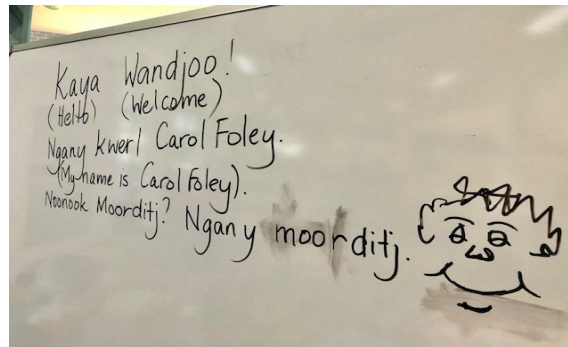 Kaya Wandjoo!
(Hello) (Welcome)
Ngany kwerl Carol Foley.
(My name is Carol Foley).
Noonook Moorditj? Ngany moorditj.